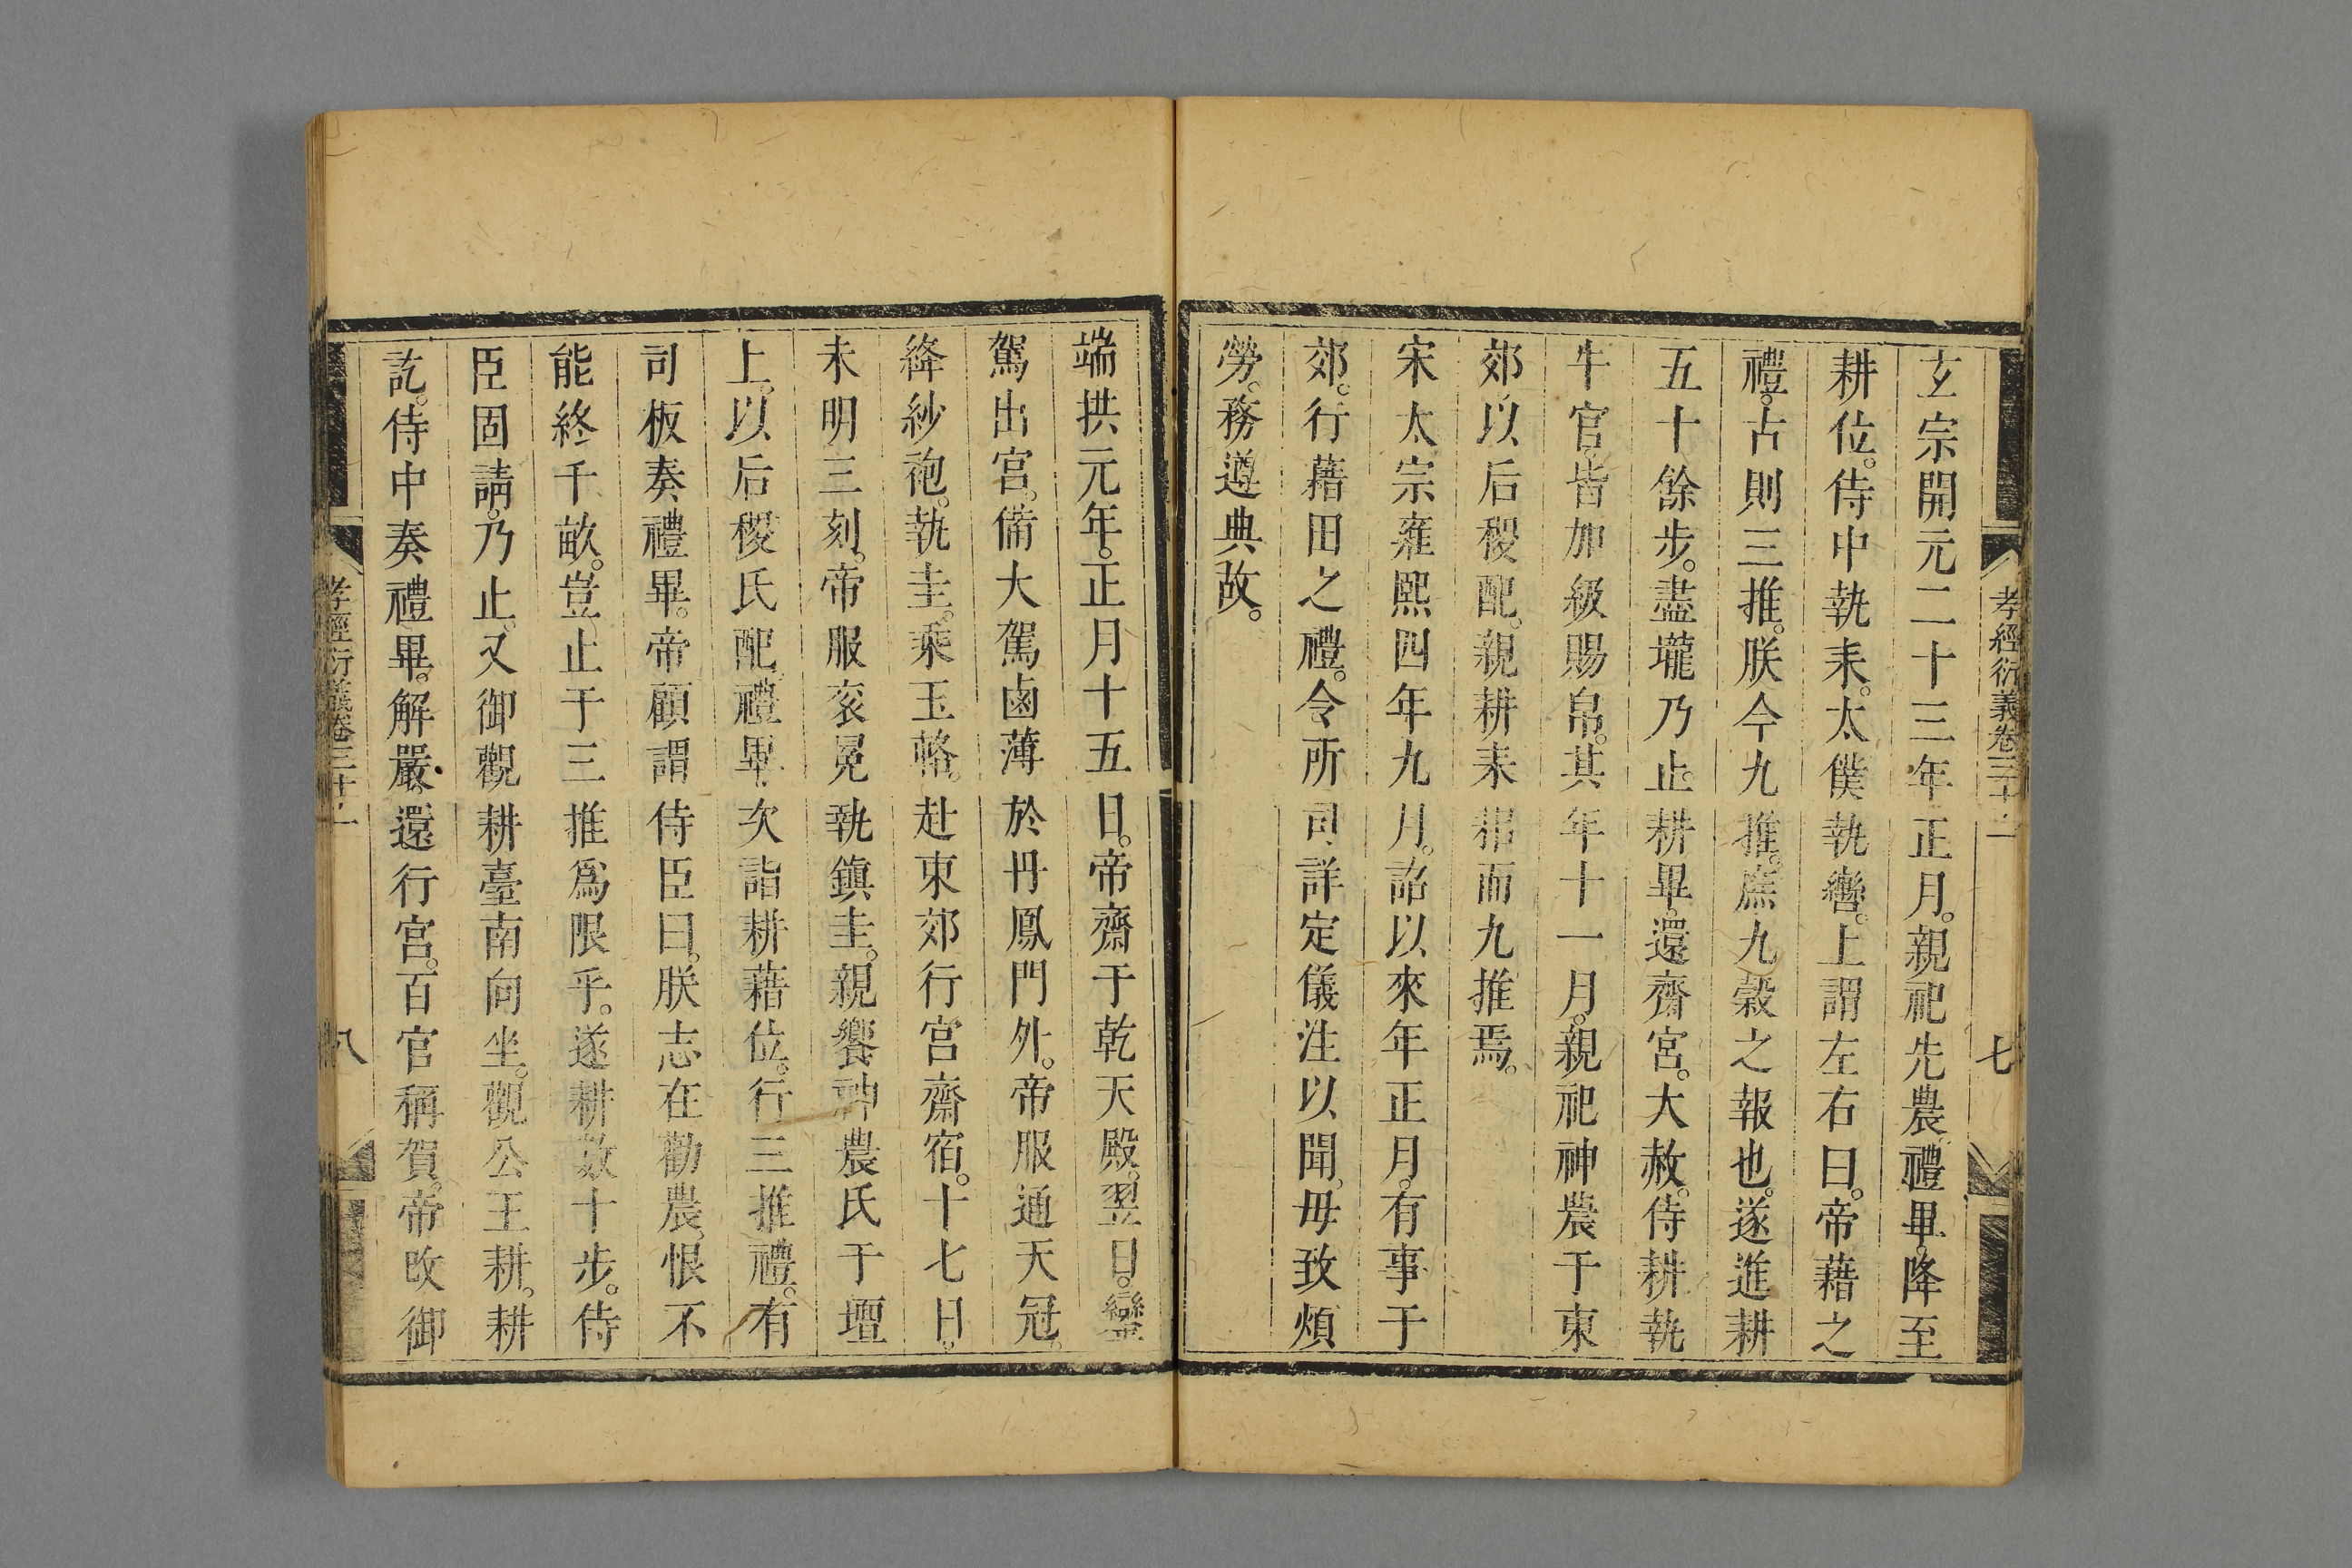 孝經衍義卷三十二
七
玄宗開元二十三年正月。親祀先農。禮畢。降至
耕位。侍中執耒。太僕執轡。上謂左右曰。帝藉之
禮。古則三推。朕今九推。庶九穀之報也。遂進耕
五十餘步。盡壠乃止。耕畢。還齋宮。大赦。侍耕執
牛官。皆加級賜帛。其年十一月。親祀神農于東
郊以后稷配。親耕耒耜而九推焉。
宋太宗雍熙四年九月。詔以來年正月。有事于
郊。行藉田之禮。令所司詳定儀注以聞。毋致煩
勞。務遵典故。
端拱元年。正月十五日。帝齋于乾天殿。翌日。鑾
駕出宮。備大駕鹵薄於丹鳳門外。帝服通天冠。
絳紗袍。執圭。乘玉輅。赴東郊行宮齋宿。十七日。
未明三刻。帝服袞冕執鎮圭。親饗神農氏于壇
上。以后稷氏配。禮畢。次詣耕藉位。行三推禮。有
司板奏禮畢。帝顧謂侍臣曰。朕志在勸農。恨不
能終千畝。豈止于三推爲限乎。遂耕數十步。侍
臣固請。乃止。又御觀耕臺南向坐。觀公王耕。耕
訖。侍中奏禮畢。解嚴。還行宮。百官稱賀。帝改御
孝經衍義卷三十二
八